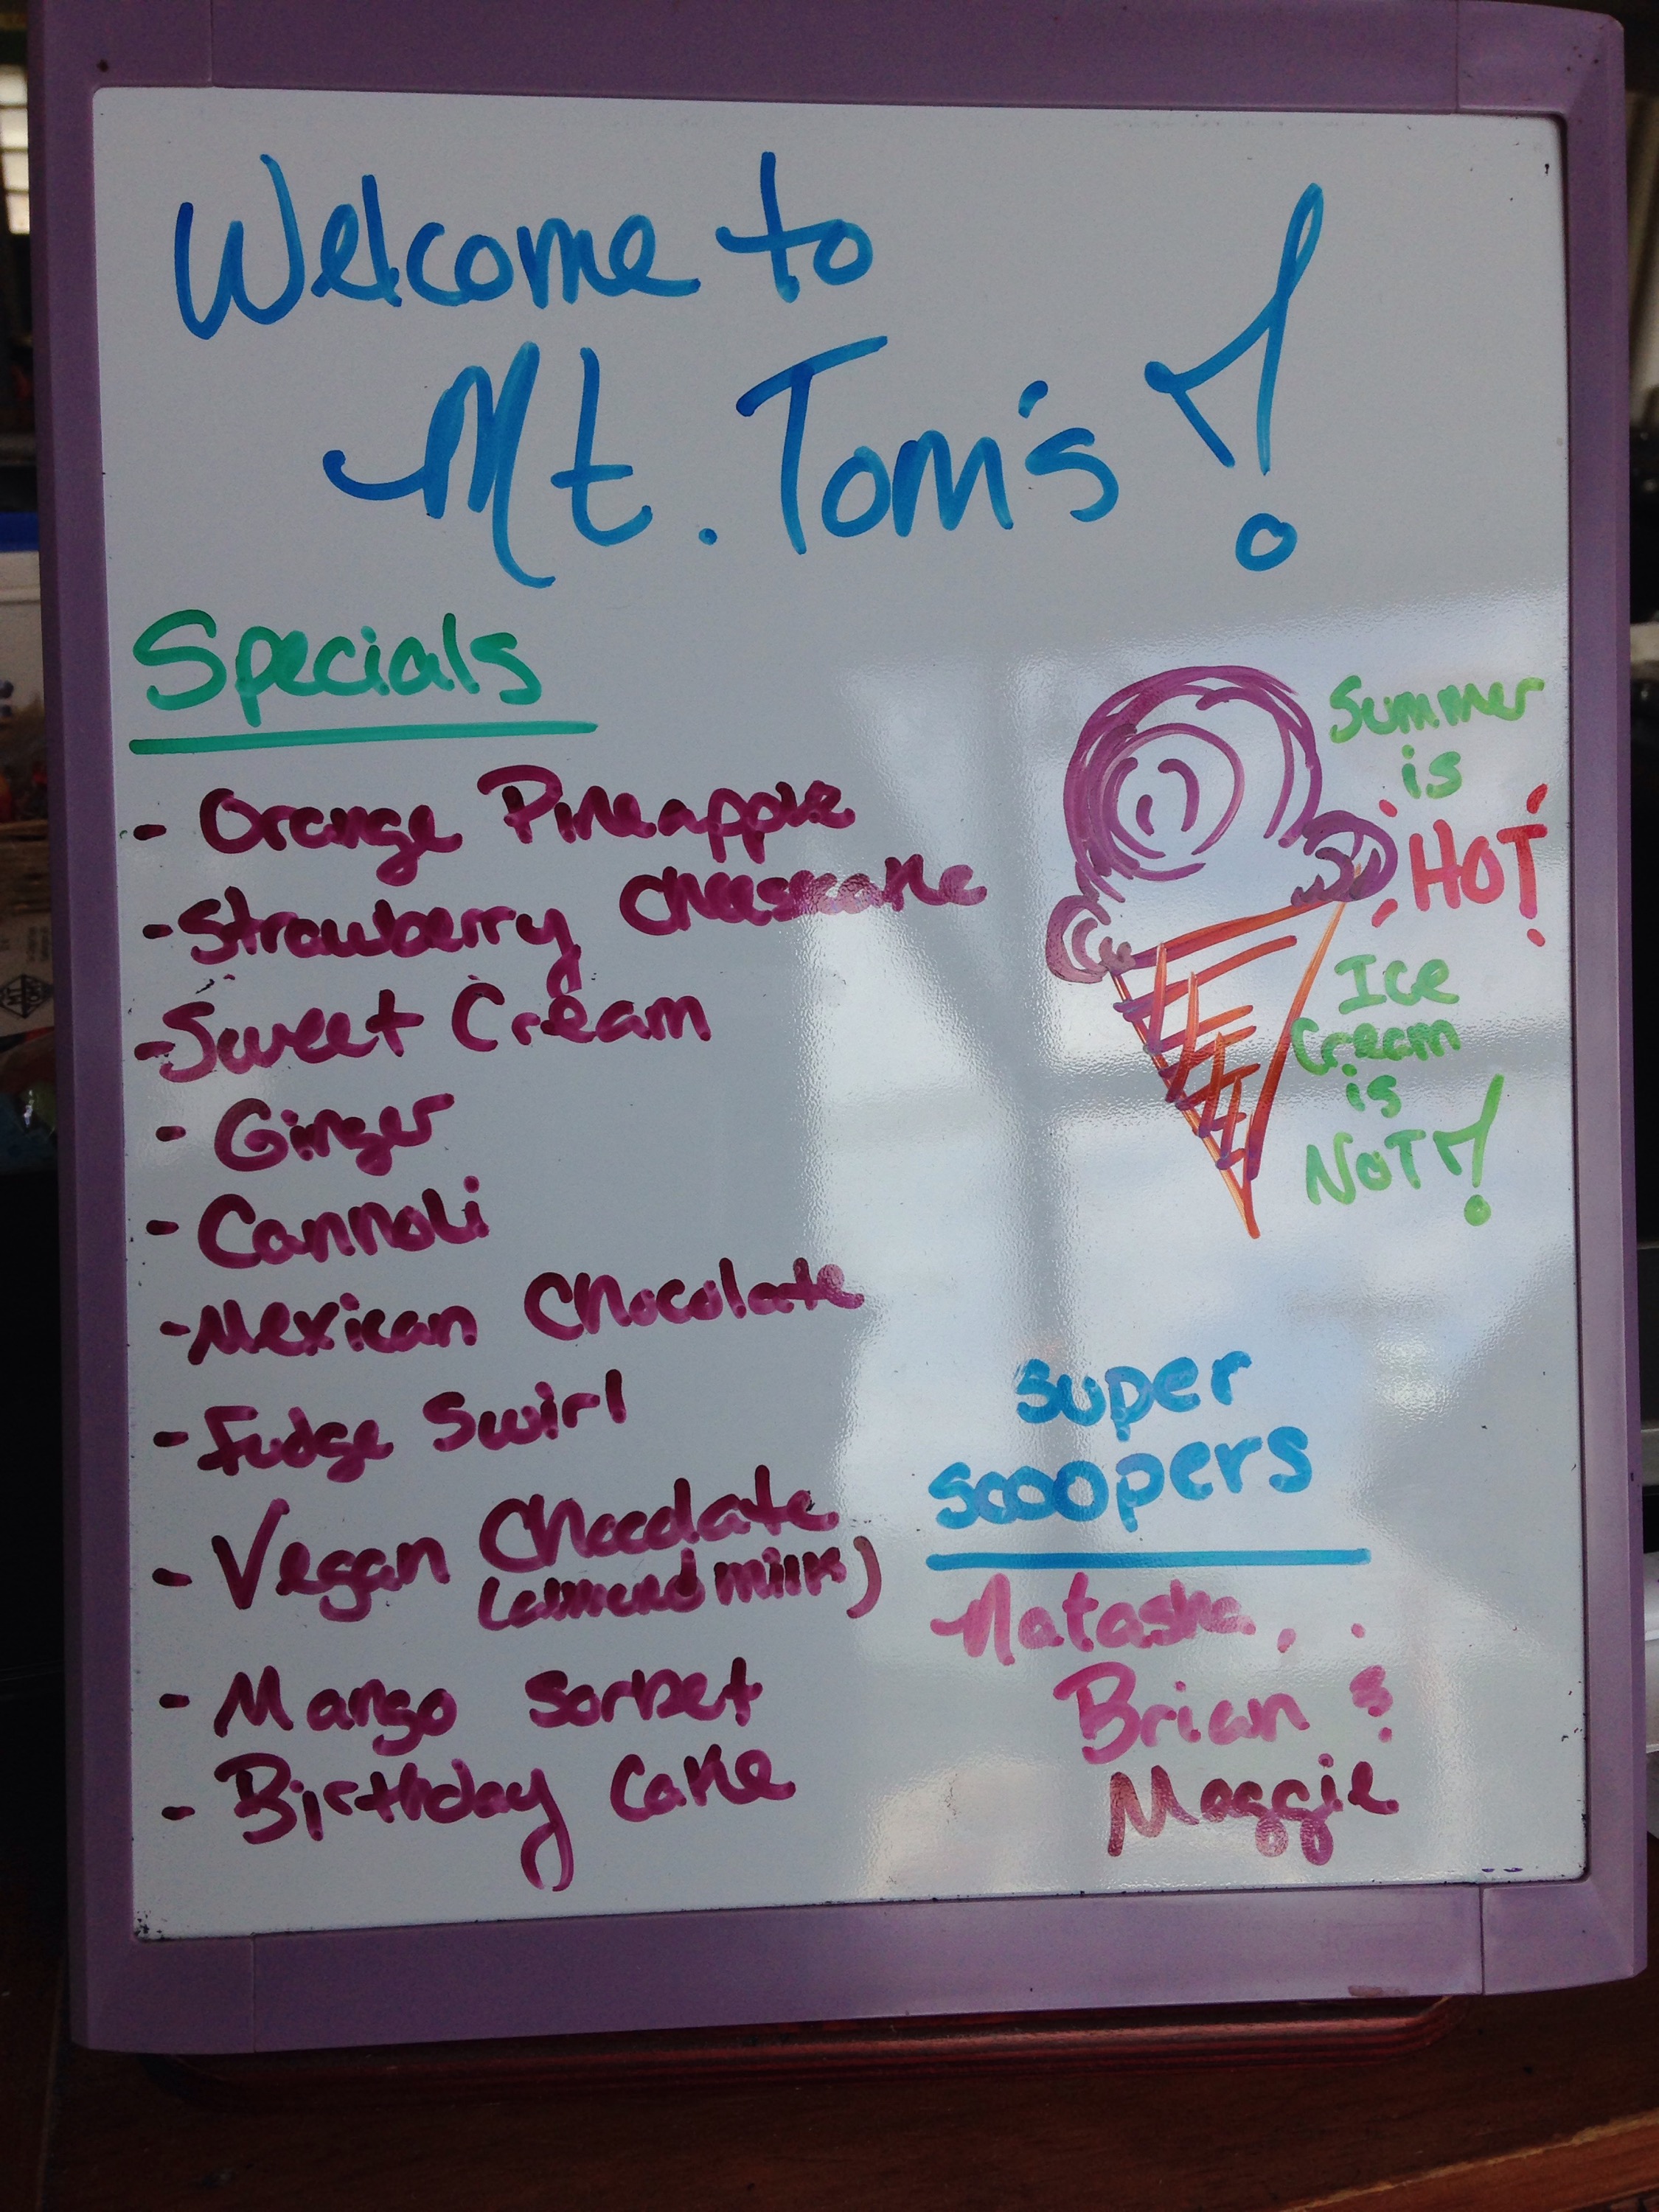 Welcome to
Mt. Tom's!
Specials
- Orange Pineapple
- Strawberry Cheesecake
- Sweet Cream
- Ginger
- Cannoli
- Mexican Chocolate
- Fudge Swirl
- Vegan Chocolate
(almond milk)
- Mango Sorbet
- Birthday Cake
Summer
is
HOT
Ice
Cream
is
NOT!
Super
Scooopers
Natasha,
Brian &
Maggie